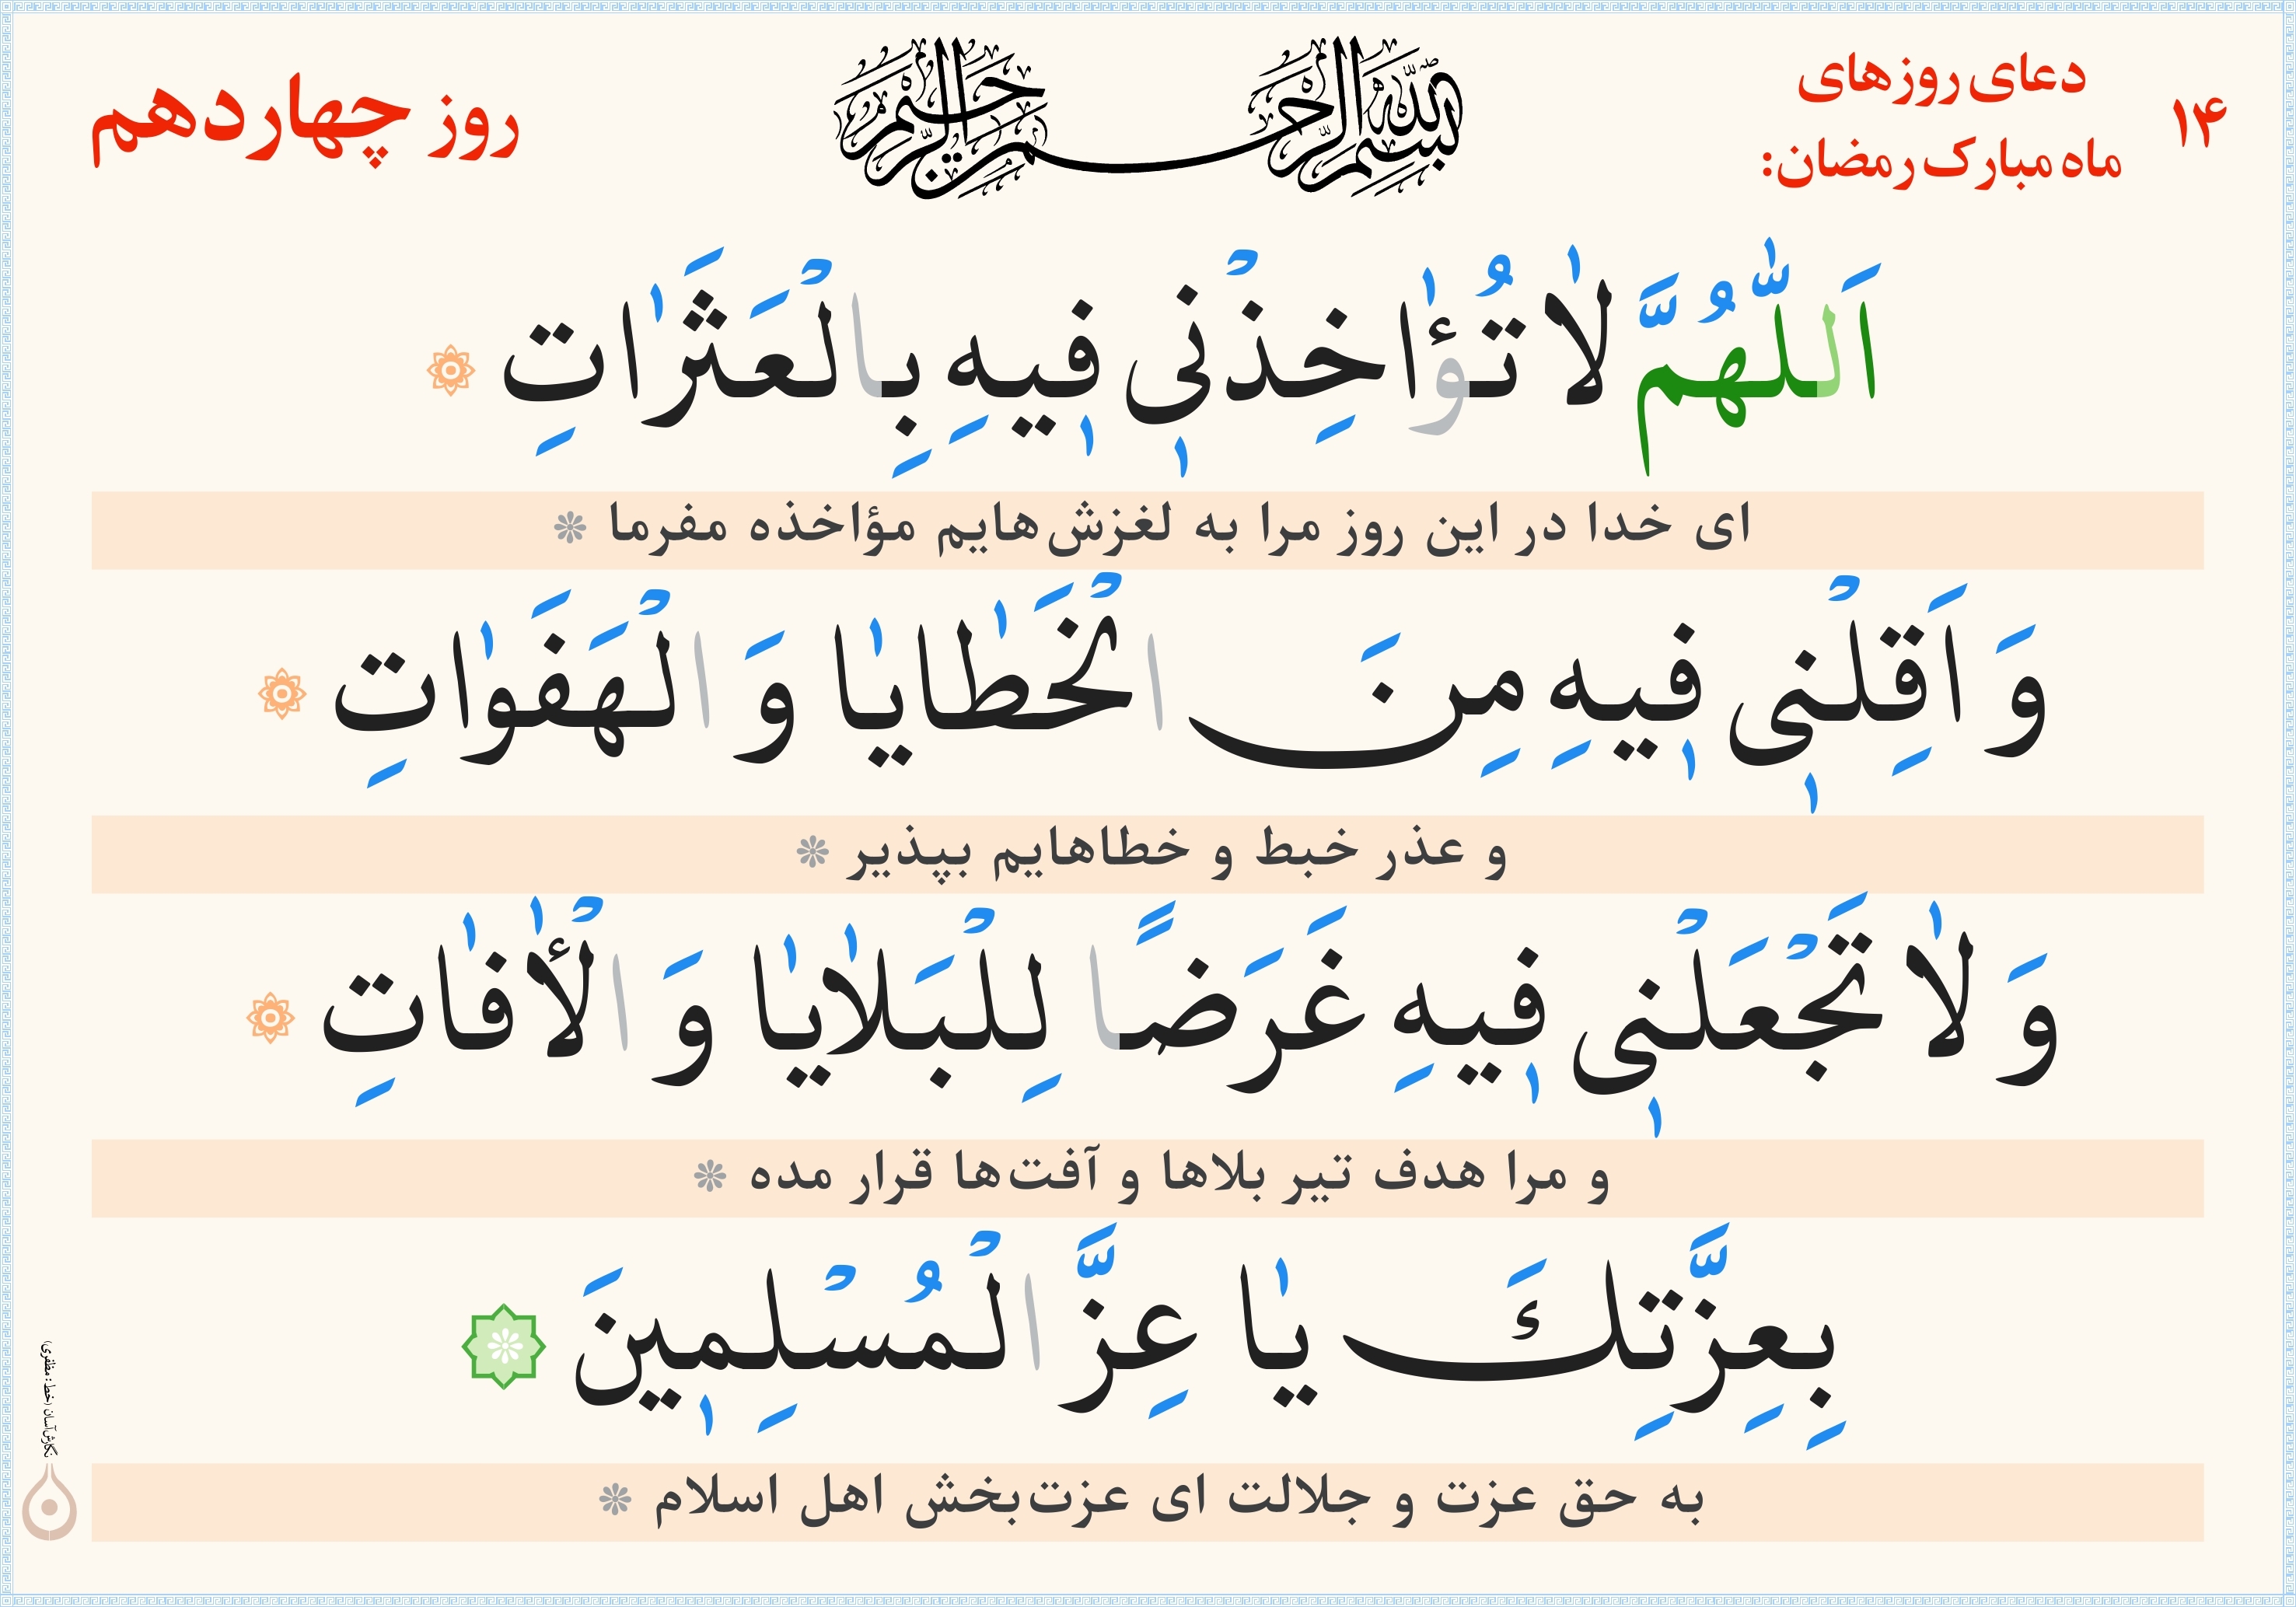 ۱۴
دعای روزهای
ماه مبارک رمضان:
بسم الله الرحمن الرحیم
روز چهاردهم
اَللّٰهُمَّ لاٰ تُؤٰاخِذْنٖی فٖیهِ بِالْعَثَرٰاتِ
ای خدا در این روز مرا به لغزش‌هایم مؤاخذه مفرما
وَ اَقِلْنٖی فٖیهِ مِنَ الْخَطٰایٰا وَ الْهَفَوٰاتِ
و عذر خبط و خطاهایم بپذیر
وَ لاٰ تَجْعَلْنٖی فٖیهِ غَرَضًا لِلْبَلاٰیٰا وَ الْأٰفٰاتِ
و مرا هدف تیر بلاها و آفت‌ها قرار مده
بِعِزَّتِكَ یٰا عِزَّ الْمُسْلِمٖینَ
به حق عزت و جلالت ای عزت‌بخش اهل اسلام
نگارش‌آسان (خط: مظفری)